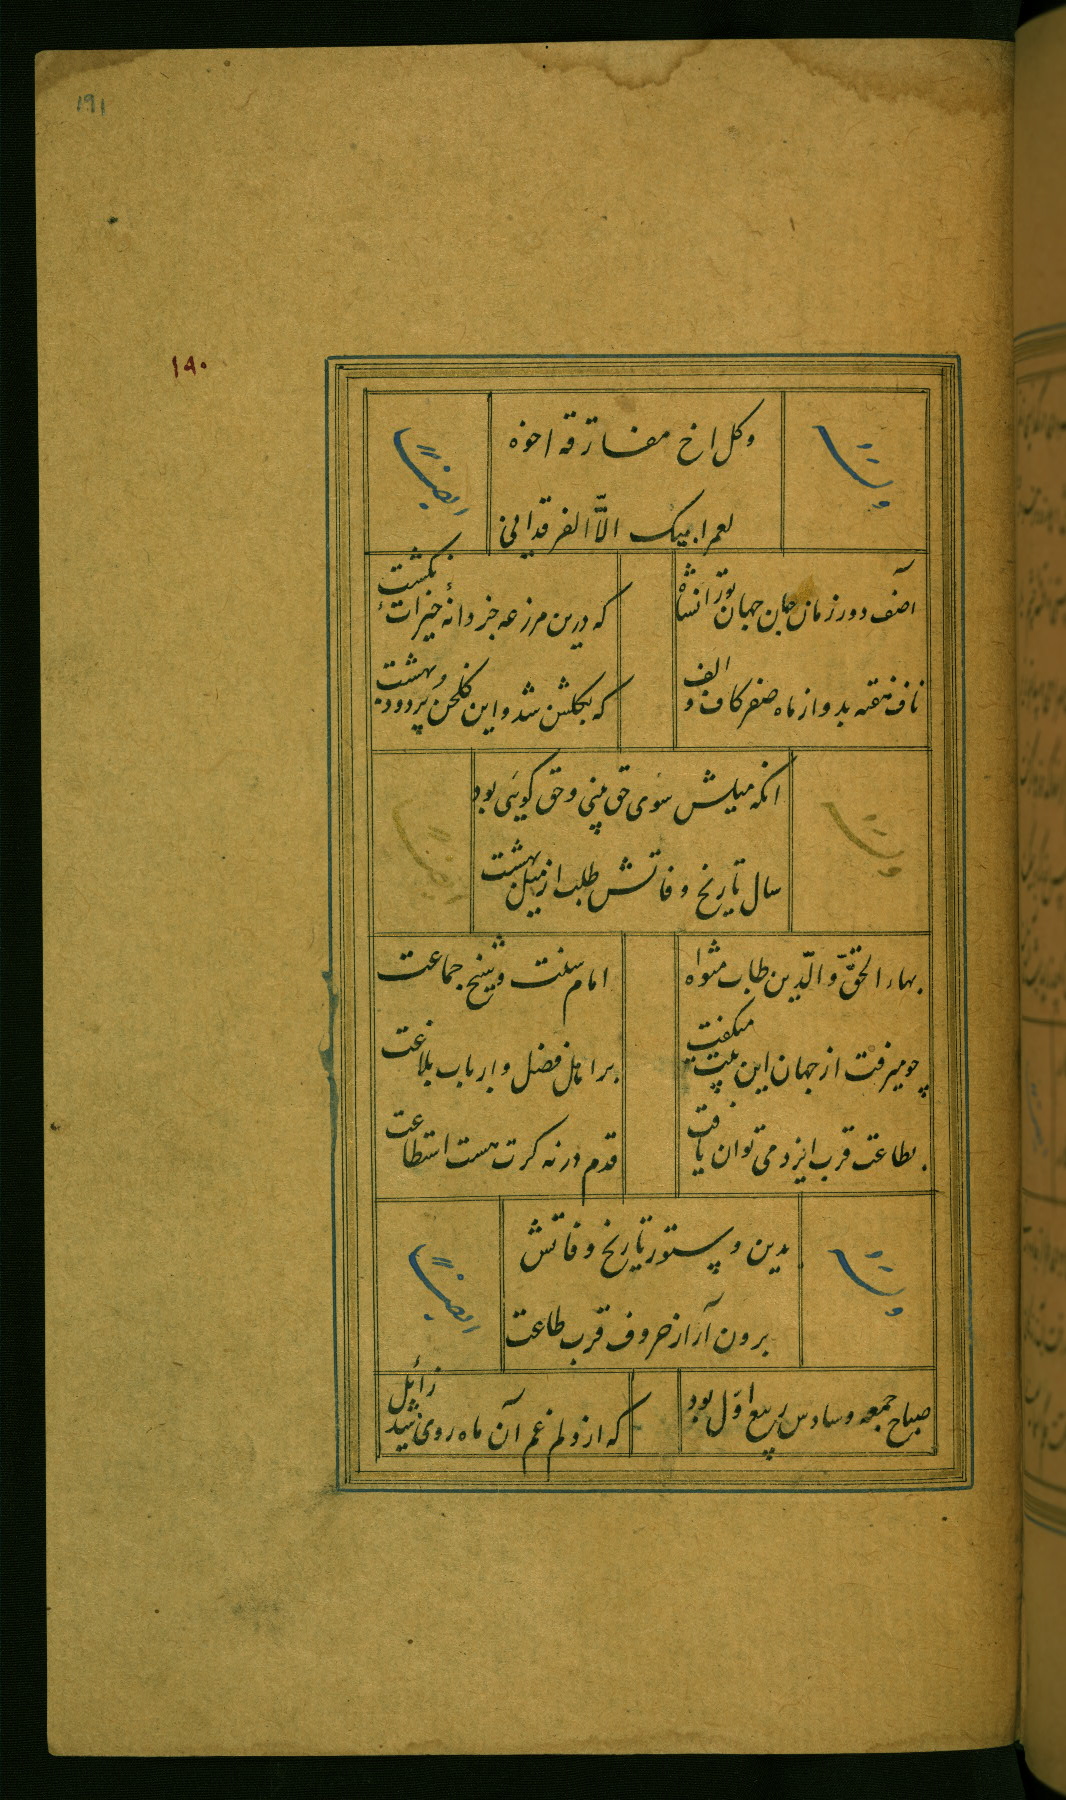 ۱۹۱
۱۹۰
وله ایضاً
وکل اخ مفارقه اخوه
لعمر ابیک الا الفرقدانی
آصف دور زمان جان جهان تورانشاه
که درین مزرعه جز دانهٔ خیرات نکشت
ناف هفته بد و از ماه صفر کاف و الف
که بگلشن شد و این گلخن پر دود بهشت
وله ایضاً
انکه میلش سوی حق بینی و حق کویی بود
سال تاریخ وفاتش طلب از میل بهشت
بهاء الحق و الدین طاب مثواه
امام سنت و شیخ جماعت
چو میرفت از جهان این بیت میکفت
بر اهل فضل و ارباب بلاغت
بطاعت قرب ایزد می توان یافت
قدم در نه کرت هست استطاعت
بدین دستور تاریخ وفاتش
برون آر از حروف قرب طاعت
وله ایضاً
صباح جمعه و سادس ربیع اول بود
که از دلم غم آن ماه روی شد زائل